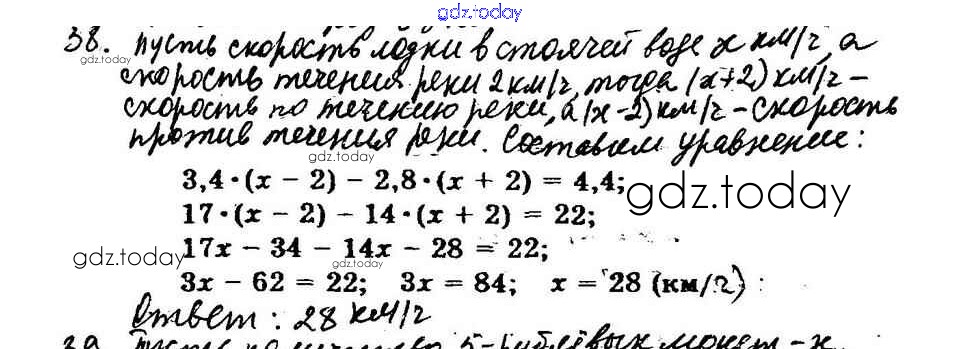 gdz.today
38. Пусть скорость лодки в стоячей воде x км/ч, а
gdz.today
скорость течения реки 2 км/ч, тогда (x+2) км/ч –
скорость по течению реки, а (x-2) км/ч – скорость
против течения реки. Составим уравнение:
gdz.today
3,4·(x − 2) − 2,8·(x + 2) = 4,4;
gdz.today
17·(x − 2) − 14·(x + 2) = 22;
17x − 34 − 14x − 28 = 22;
gdz.today
gdz.today
3x − 62 = 22; 3x = 84; x = 28 (км/ч)
Ответ: 28 км/ч
39. Пусть 5-рублёвых монет – x